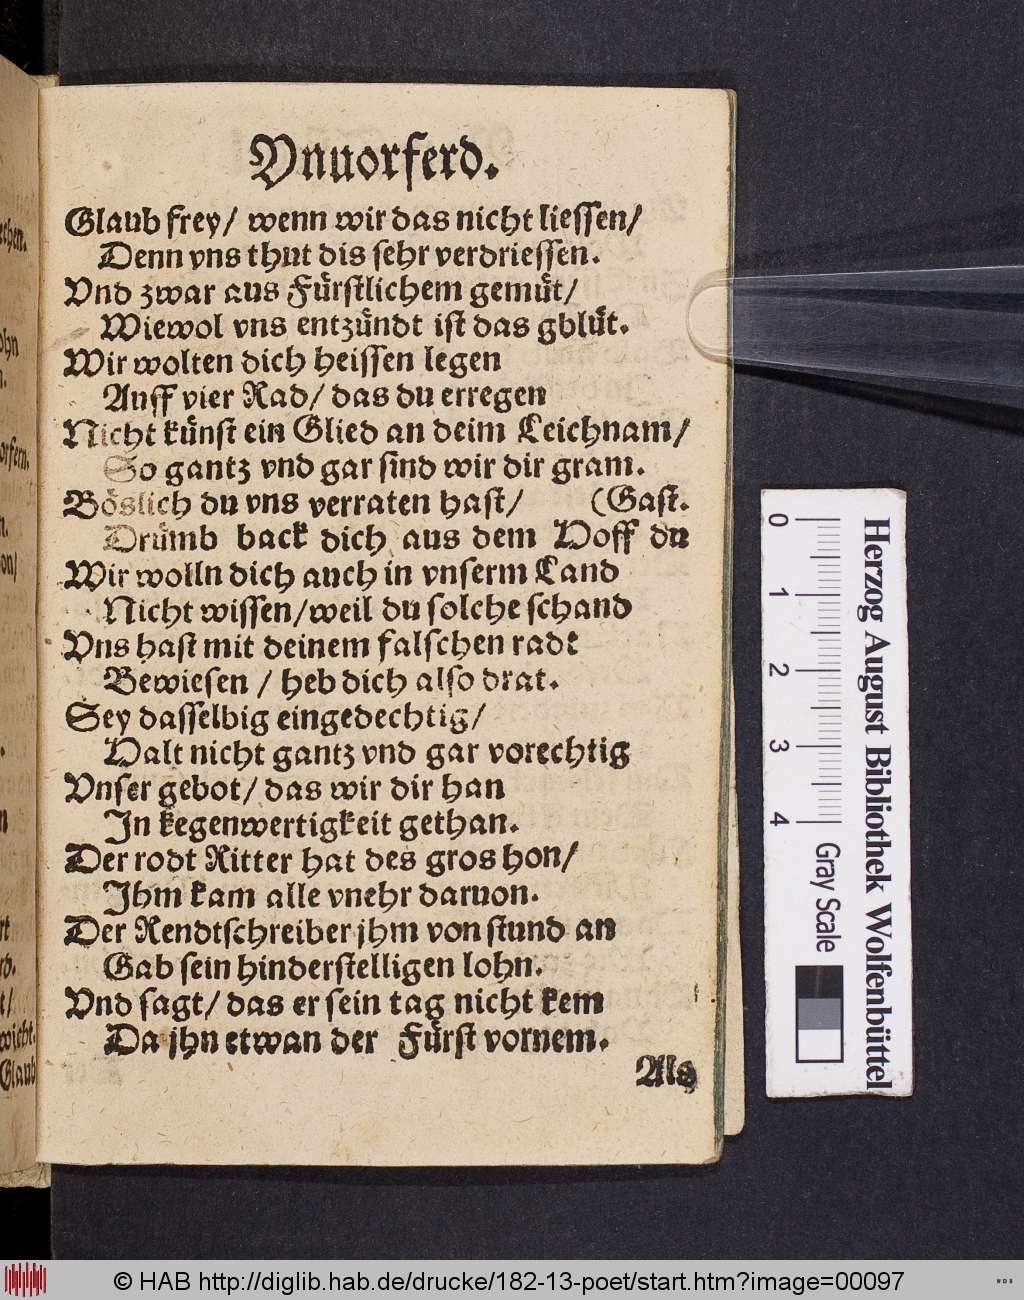 Vnuorferd.
Glaub frey/ wenn wir das nicht liessen/
Denn vns thut dis sehr verdriessen.
Vnd zwar aus Fürstlichem gemüt/
Wiewol vns entzündt ist das gblüt.
Wir wolten dich heissen legen
Auff vier Rad/ das du erregen
Nicht künst ein Glied an deim Leichnam/
So gantz vnd gar sind wir dir gram.
Böslich du vns verraten hast/ (Gast.
Drümb back dich aus dem Hoff du
Wir wolln dich auch in vnserm Land
Nicht wissen/weil du solche schand
Vns hast mit deinem falschen radt
Bewiesen / heb dich also drat.
Sey dasselbig eingedechtig/
Halt nicht gantz vnd gar vorechtig
Vnser gebot/ das wir dir han
In kegenwertigkeit gethan.
Der rodt Ritter hat des gros hon/
Ihm kam alle vnehr daruon.
Der Rendtschreiber jhm von stund an
Gab sein hinderstelligen lohn.
Vnd sagt/ das er sein tag nicht kem
Da jhn etwan der Fürst vornem.
Als
Glaub
0 1 2 3 4
Gray Scale
Herzog August Bibliothek Wolfenbüttel
© HAB http://diglib.hab.de/drucke/182-13-poet/start.htm?image=00097